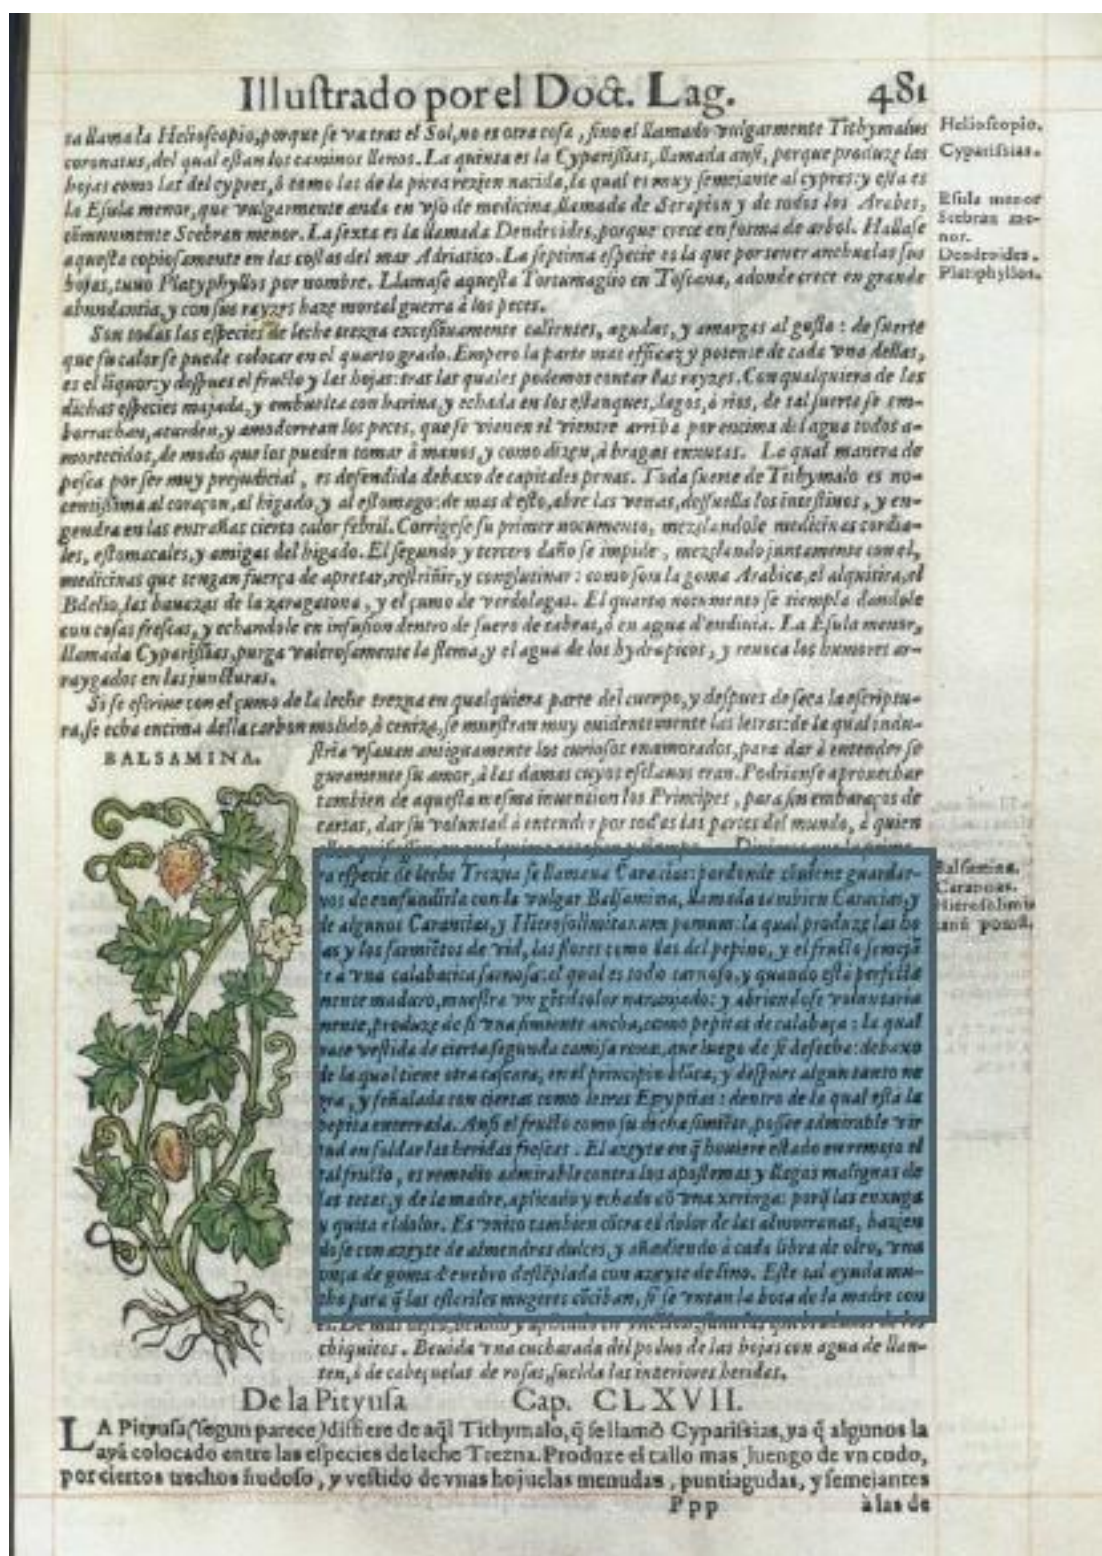 Illustrado por el Doct. Lag. 481
ra llama la Helioscopio, porque se va tras el Sol, no es otra cosa, sino el llamado vulgarmente Tithymalus
coronatus, del qual estan los caminos llenos. La quinta es la Cyparissias, llamada ansi, porque produze las
hojas como las del cypres, ò como las de la picea rezien nacida, la qual es muy semejante al cypres: y esta es
la Esula menor, que vulgarmente anda en vso de medicina, llamada de Serapion y de todos los Arabes,
cõmunmente Scebran menor. La sexta es la llamada Dendroides, porque crece en forma de arbol. Hallase
aquesta copiosamente en las costas del mar Adriatico. La septima especie es la que por tener anchuelas sus
hojas, tuuo Platyphyllos por nombre. Llamase aquesta Tortumaglio en Toscana, adonde crece en grande
abundantia, y con sus rayzes haze mortal guerra à los peces.
Helioscopio.
Cyparissias.
Esula menor
Scebran me-
nor.
Dendroides.
Platyphyllos.
Son todas las especies de leche trezna excessiuamente calientes, agudas, y amargas al gusto: de suerte
que su calor se puede colocar en el quarto grado. Empero la parte mas efficaz y potente de cada vna dellas,
es el liquor: y despues el fructo y las hojas: tras las quales podemos contar las rayzes. Con qualquiera de las
dichas especies majada, y embuelta con harina, y echada en los estanques, lagos, ò rios, de tal suerte se em-
borrachan, aturden, y amodorrean los peces, que se vienen el vientre arriba por encima del agua todos a-
mortecidos, de modo que los pueden tomar à manos, y como dizen, à bragas enxutas. La qual manera de
pesca por ser muy prejudicial, es defendida debaxo de capitales penas. Toda suerte de Tithymalo es no-
centissima al coraçon, al higado, y al estomago: de mas d'esto, abre las venas, dessuella los intestinos, y en-
gendra en las entrañas cierto calor febril. Corrigese su primer nocumento, mezclandole medicinas cordia-
les, estomacales, y amigas del higado. El segundo y tercero daño se impide, mezclando juntamente con el,
medicinas que tengan fuerça de apretar, restriñir, y conglutinar: como son la goma Arabica, el alquitira, el
Bdelio, las bauazas de la zaragatona, y el çumo de verdolagas. El quarto nocumento se tiempla dandole
con cosas frescas, y echandole en infusion dentro de suero de cabras, ò en agua d'endiuia. La Esula menor,
llamada Cyparissias, purga valerosamente la flema, y el agua de los hydropicos, y reuoca los humores ar-
raygados en las juncturas.
Si se escriue con el çumo de la leche trezna en qualquiera parte del cuerpo, y despues de seca la escriptu-
ra, se echa encima della carbon molido, ò ceniza, se muestran muy euidentemente las letras: de la qual indu-
BALSAMINA.
stria vsauan antiguamente los curiosos enamorados, para dar à entender se
guramente su amor, à las damas cuyos esclauos eran. Podrianse aprouechar
tambien de aquesta mesma inuention los Principes, para sin embaraços de
cartas, dar su voluntad à entender por todas las partes del mundo, à quien
ra especie de leche Trezna se llamaua Caracias: por donde cõuiene guardar-
vos de confundirla con la vulgar Balsamina, llamada tambien Caracias, y
de algunos Caranzas, y Hierosolimitanum pomum: la qual produze las ho
as y los sarmiẽtos de vid, las flores como las del pepino, y el fructo semejã
te à vna calabacica sarnosa: el qual es todo carnoso, y quando està perfecta
mente maduro, muestra vn gẽtil color naranjado: y abriendose voluntaria
mente, produze de si vna simiente ancha, como pepitas de calabaça: la qual
nace vestida de cierta segunda camisa roxa, que luego de si desecha: debaxo
de la qual tiene otra cascara, en el principio blãca, y despues algun tanto ne
gra, y señalada con ciertas como letras Egyptias: dentro de la qual està la
pepita encerrada. Ansi el fructo como su dicha simiẽte, possee admirable vir
tud en soldar las heridas frescas. El azeyte en q̃ houiere estado en remojo el
tal fructo, es remedio admirable contra los apostemas y llagas malignas de
las tetas, y de la madre, aplicado y echado cõ vna xeringa: porq̃ las enxuga
y quita el dolor. Es vnico tambien cõtra el dolor de las almorranas, hazien
dose con azeyte de almendras dulces, y añadiendo à cada libra de olio, vna
onça de goma d'enebro destẽplada con azeyte de lino. Este tal ayuda mu-
cho para q̃ las esteriles mugeres cõciban, si se vntan la boca de la madre con
chiquitos. Beuida vna cucharada del poluo de las hojas con agua de llan-
ten, ò de cabeçuelas de rosas, suelda las interiores heridas.
Balsamina.
Caranzas.
Hierosolimi
tanũ pomũ.
De la Pityusa Cap. CLXVII.
LA Pityusa (segun parece) differe de aq̃l Tithymalo, q̃ se llamò Cyparissias, ya q̃ algunos la
ayã colocado entre las especies de leche Trezna. Produze el tallo mas luengo de vn codo,
por ciertos trechos ñudoso, y vestido de vnas hojuelas menudas, puntiagudas, y semejantes
Ppp à las de